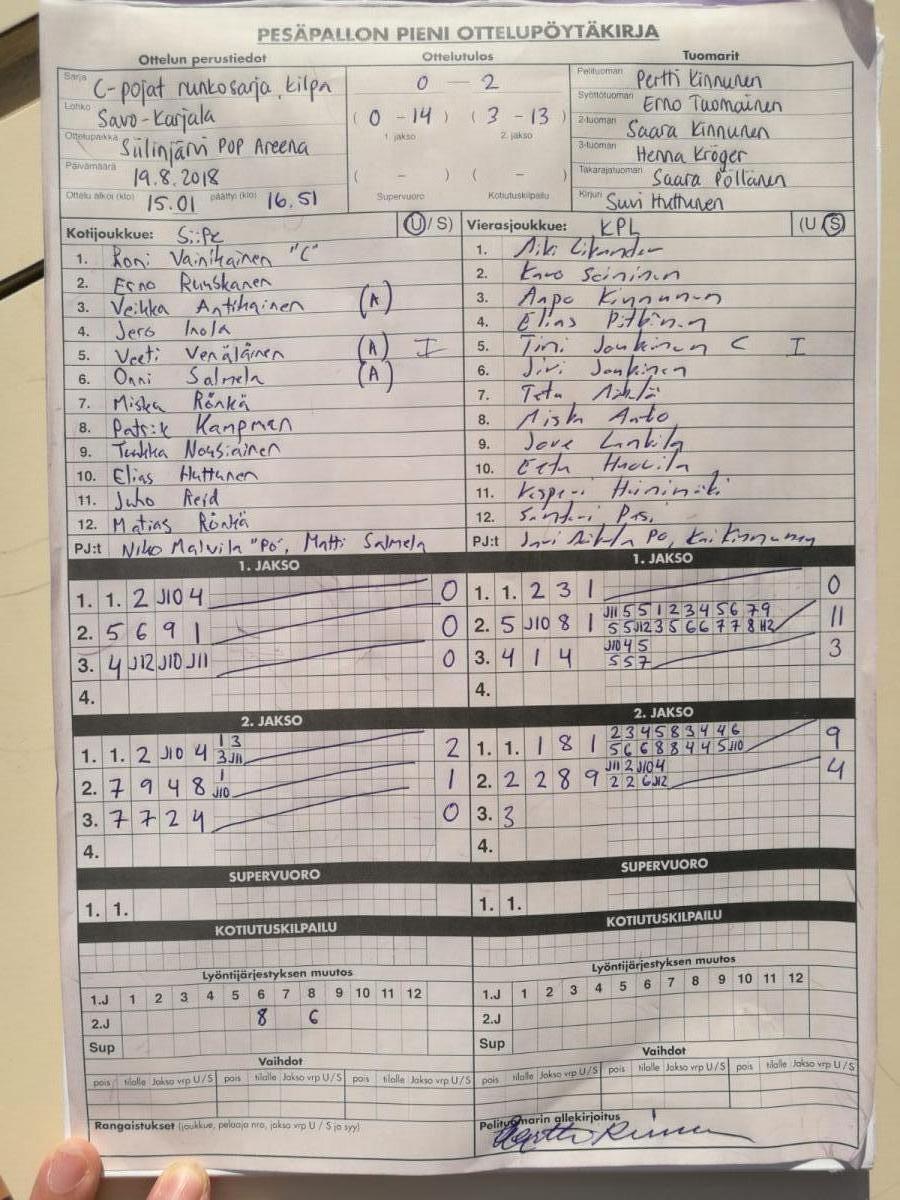 PESÄPALLON PIENI OTTELUPÖYTÄKIRJA
Ottelun perustiedot Ottelutulos Tuomarit
Sarja C-pojat runkosarja, kilpa
Lohko Savo-Karjala
Ottelupaikka Siilinjärvi POP Areena
Päivämäärä 19.8.2018
Ottelu alkoi (klo) 15.01 päättyi (klo) 16.51
0 - 2
( 0 - 14 ) ( 3 - 13 )
1. jakso 2. jakso
( - ) ( - )
Supervuoro Kotiutuskilpailu
Pelituomari Pertti Kinnunen
Syöttötuomari Erno Tuomainen
2-tuomari Saara Kinnunen
3-tuomari Henna Kröger
Takarajatuomari Saara Pöllänen
Kirjuri Suvi Huttunen
Kotijoukkue: SiiPe (U / S)
1. Roni Vainikainen "C"
2. Eerno Ruuskanen
3. Veikka Antikainen (A)
4. Jero Inola
5. Veeti Venäläinen (A) I
6. Onni Salmela (A)
7. Miska Rönkä
8. Patrik Kampman
9. Tuukka Nousiainen
10. Elias Huttunen
11. Juho Reid
12. Matias Rönkä
PJ:t Niko Malvila "PO", Matti Salmela
Vierasjoukkue: KPL (U / S)
1. Miki
2. Seininen
3. Aapo Kinnunen
4. Elias Pitkänen
5. Timi Jonkinen C I
6. Jiri Jonkinen
7.
8. Aisto
9.
10. Eetu
11. Kasperi Heinimäki
12. Santeri
PJ:t PO, Kai Kinnunen
1. JAKSO
1. 1. 2 J10 4 0
2. 5 6 9 1 0
3. 4 J12 J10 J11 0
4.
1. JAKSO
1. 1. 2 3 1 0
2. 5 J10 8 1 J11 5 5 1 2 3 4 5 6 7 9 11
5 5 J12 3 5 6 6 7 7 8 J12
3. 4 1 4 J10 4 5 3
5 5 7
4.
2. JAKSO
1. 1. 2 J10 4 1 3 2
3 J11
2. 7 9 4 8 1 1
J10
3. 7 7 2 4 0
4.
2. JAKSO
1. 1. 1 8 1 2 3 4 5 8 3 4 4 6 9
5 6 6 8 8 4 4 5 J10
2. 2 2 8 9 J11 2 J10 4 4
2 2 6 J12
3. 3
4.
SUPERVUORO
1. 1.
SUPERVUORO
1. 1.
KOTIUTUSKILPAILU
KOTIUTUSKILPAILU
Lyöntijärjestyksen muutos
1.J 1 2 3 4 5 6 7 8 9 10 11 12
2.J 8 6
Sup
Lyöntijärjestyksen muutos
1.J 1 2 3 4 5 6 7 8 9 10 11 12
2.J
Sup
Vaihdot
pois tilalle Jakso vrp U / S pois tilalle Jakso vrp U / S pois tilalle Jakso vrp U / S
Vaihdot
pois tilalle Jakso vrp U / S pois tilalle Jakso vrp U / S pois tilalle Jakso vrp U / S
Rangaistukset (joukkue, pelaaja nro, jakso vrp U / S ja syy)
Pelituomarin allekirjoitus